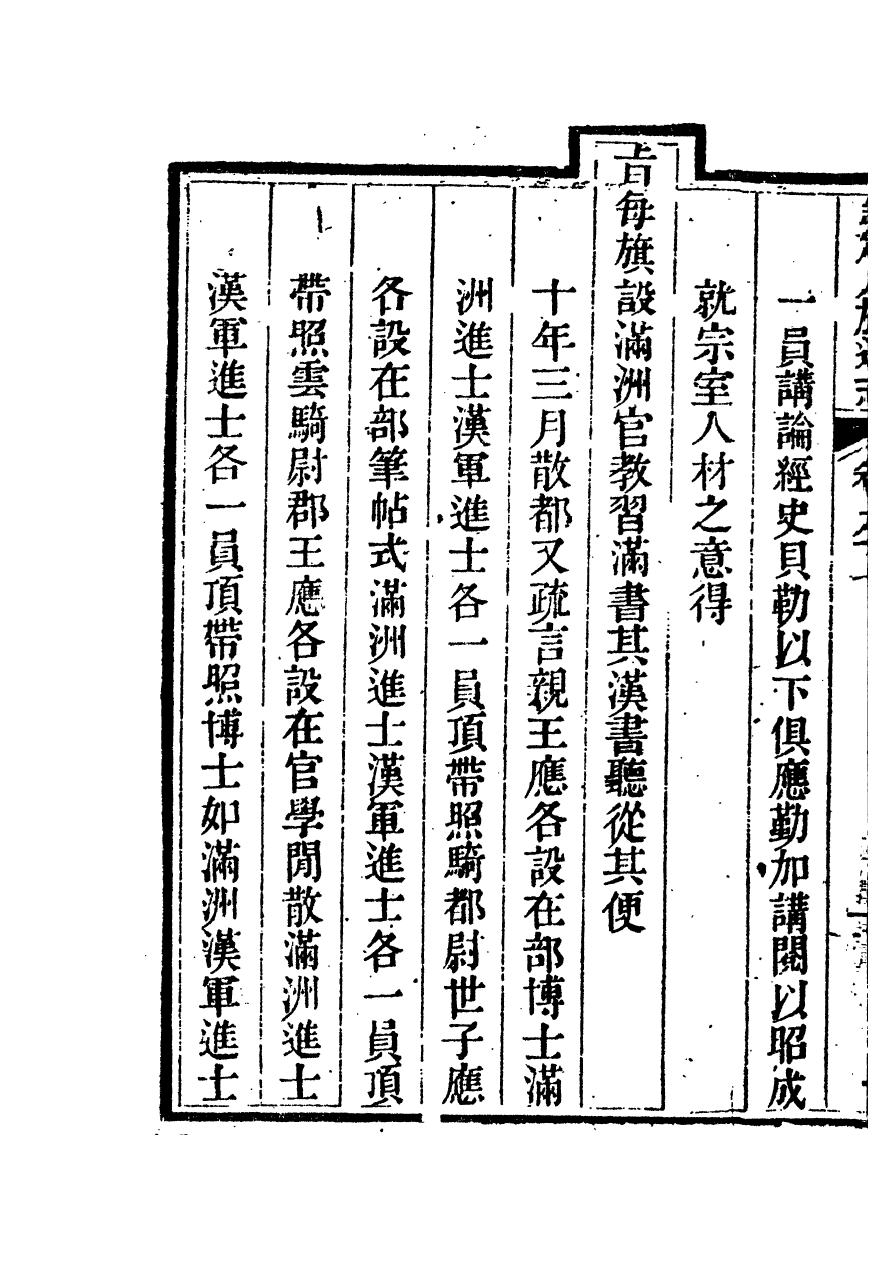 一員講論經史貝勒以下俱應勤加講閱以昭成
就宗室人材之意得
旨每旗設滿洲官教習滿書其漢書聽從其便
十年三月散都又疏言親王應各設在部博士滿
洲進士漢軍進士各一員頂帶照騎都尉世子應
各設在部筆帖式滿洲進士漢軍進士各一員頂
帶照雲騎尉郡王應各設在官學閒散滿洲進士
漢軍進士各一員頂帶照博士如滿洲漢軍進士